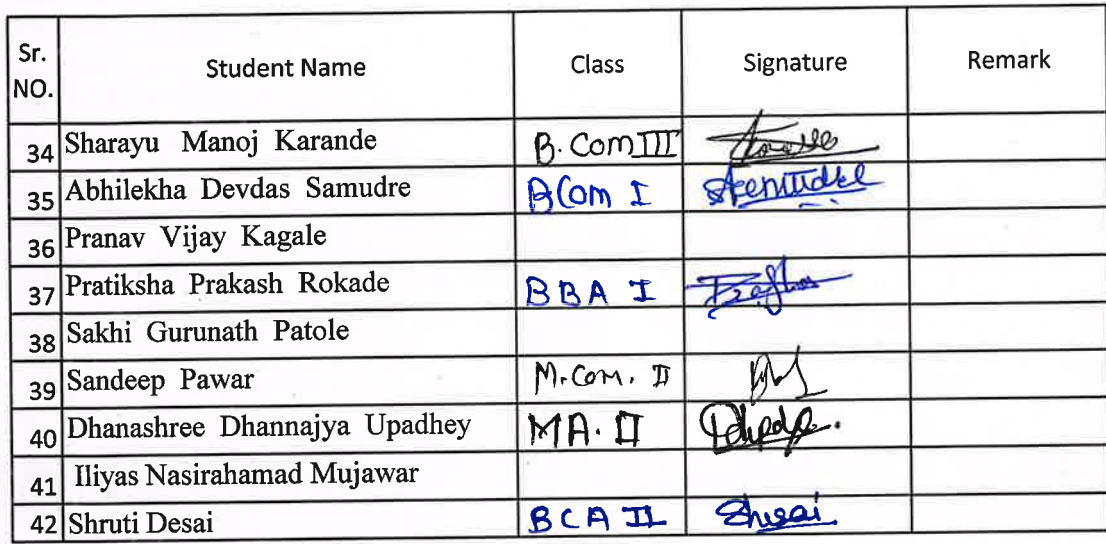 Sr. NO. Student Name Class Signature Remark
34 Sharayu Manoj Karande B. Com III
35 Abhilekha Devdas Samudre BCom I
36 Pranav Vijay Kagale
37 Pratiksha Prakash Rokade BBA I
38 Sakhi Gurunath Patole
39 Sandeep Pawar M. Com. II
40 Dhanashree Dhannajya Upadhey MA. II
41 Iliyas Nasirahamad Mujawar
42 Shruti Desai BCA II